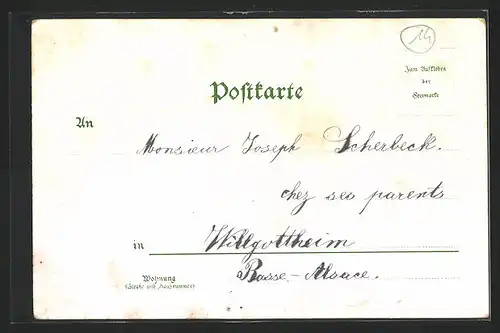 14
Zum Aufkleben
der
Freimarke
Postkarte
An
Monsieur Joseph Scherbeck.
chez ses parents
in Willgottheim
Basse-Alsace.
Wohnung
(Straße und Hausnummer)